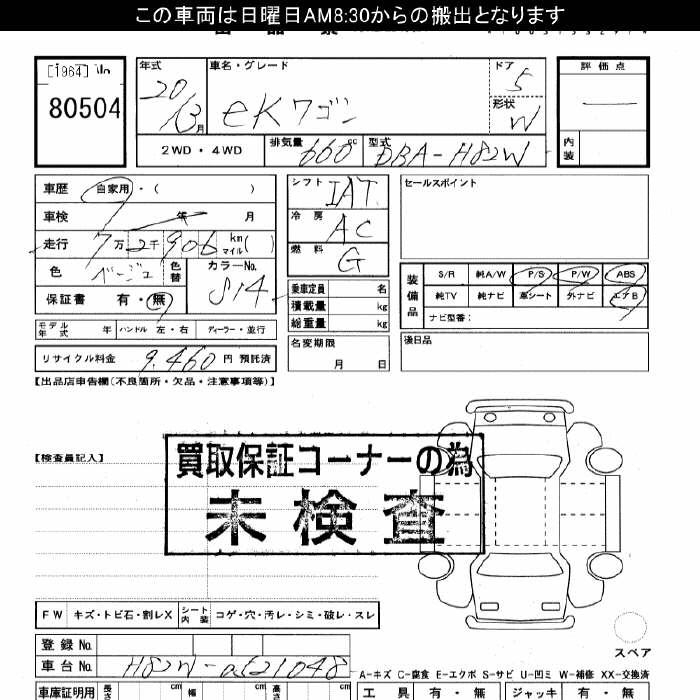 この車両は日曜日AM8:30からの搬出となります
[1964]
80504
年式
20
13月
車名・グレード
eKワゴン
ドア
5
形状
W
評価点
内装
2WD・4WD
排気量 660cc
型式 DBA-H82W
車歴 自家用・( )
車検 年 月
走行 7万2千906 km マイル( )
色 ベージュ 色替
カラーNo. S14
保証書 有・無
モデル年式 年 ハンドル 左・右 ディーラー・並行
リサイクル料金 9,460円 預託済
シフト IAT
冷房 AC
燃料 G
乗車定員 名
積載量 kg
総重量 kg
名変期限
月 日
セールスポイント
装備品
S/R 純A/W P/S P/W ABS
純TV 純ナビ 革シート 外ナビ エアB
ナビ型番:
後日品
【出品店申告欄(不良箇所・欠品・注意事項等)】
【検査員記入】
買取保証コーナーの為
未検査
FW キズ・トビ石・割レX シート内装 コゲ・穴・汚レ・シミ・破レ・スレ
スペア
登録No.
車台No. H82W-
A-キズ C-腐食 E-エクボ S-サビ U-凹ミ W-補修 XX-交換済
車庫証明用 長さ cm 幅 cm 高さ cm
工具 有・無 ジャッキ 有・無